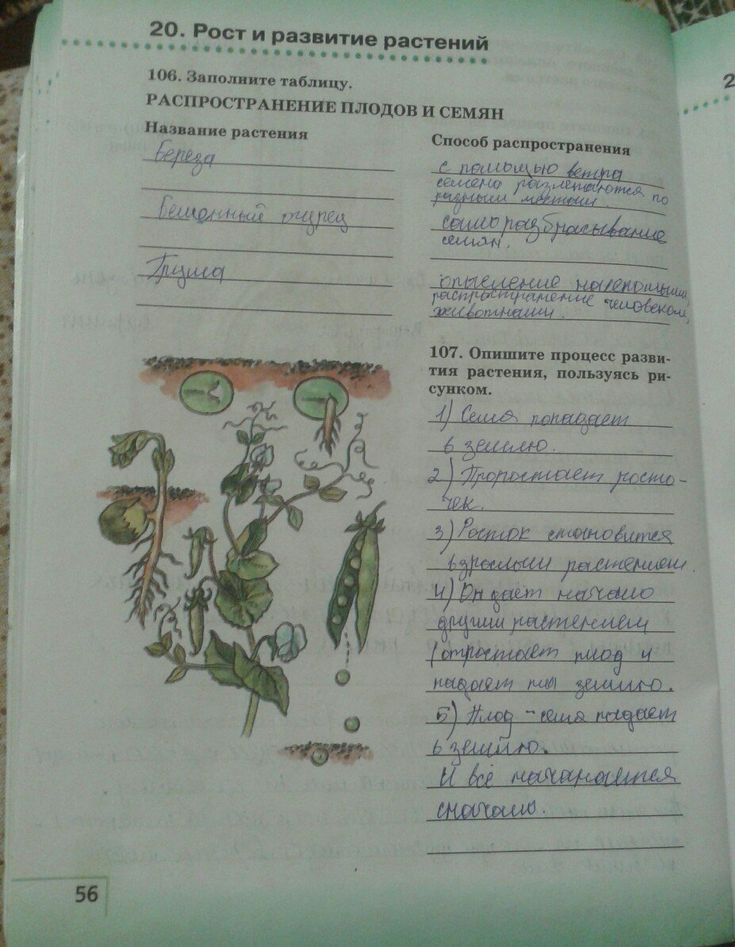 20. Рост и развитие растений
2
106. Заполните таблицу.
РАСПРОСТРАНЕНИЕ ПЛОДОВ И СЕМЯН
Название растения
Береза
Бешенный огурец
Груша
Способ распространения
с помощью ветра
семена разлетаются по
разными местами.
саморазбрасывание
семян.
опыление насекомыми,
распространение человеком,
животными.
107. Опишите процесс разви-
тия растения, пользуясь ри-
сунком.
1) Семя попадает
в землю.
2) Проростает росто-
чек.
3) Росток становится
взрослым растением.
4) Он дает начало
другим растением
(отростает плод и
падает на землю.
5) Плод - семя падает
в землю.
И всё начинается
сначало.
56